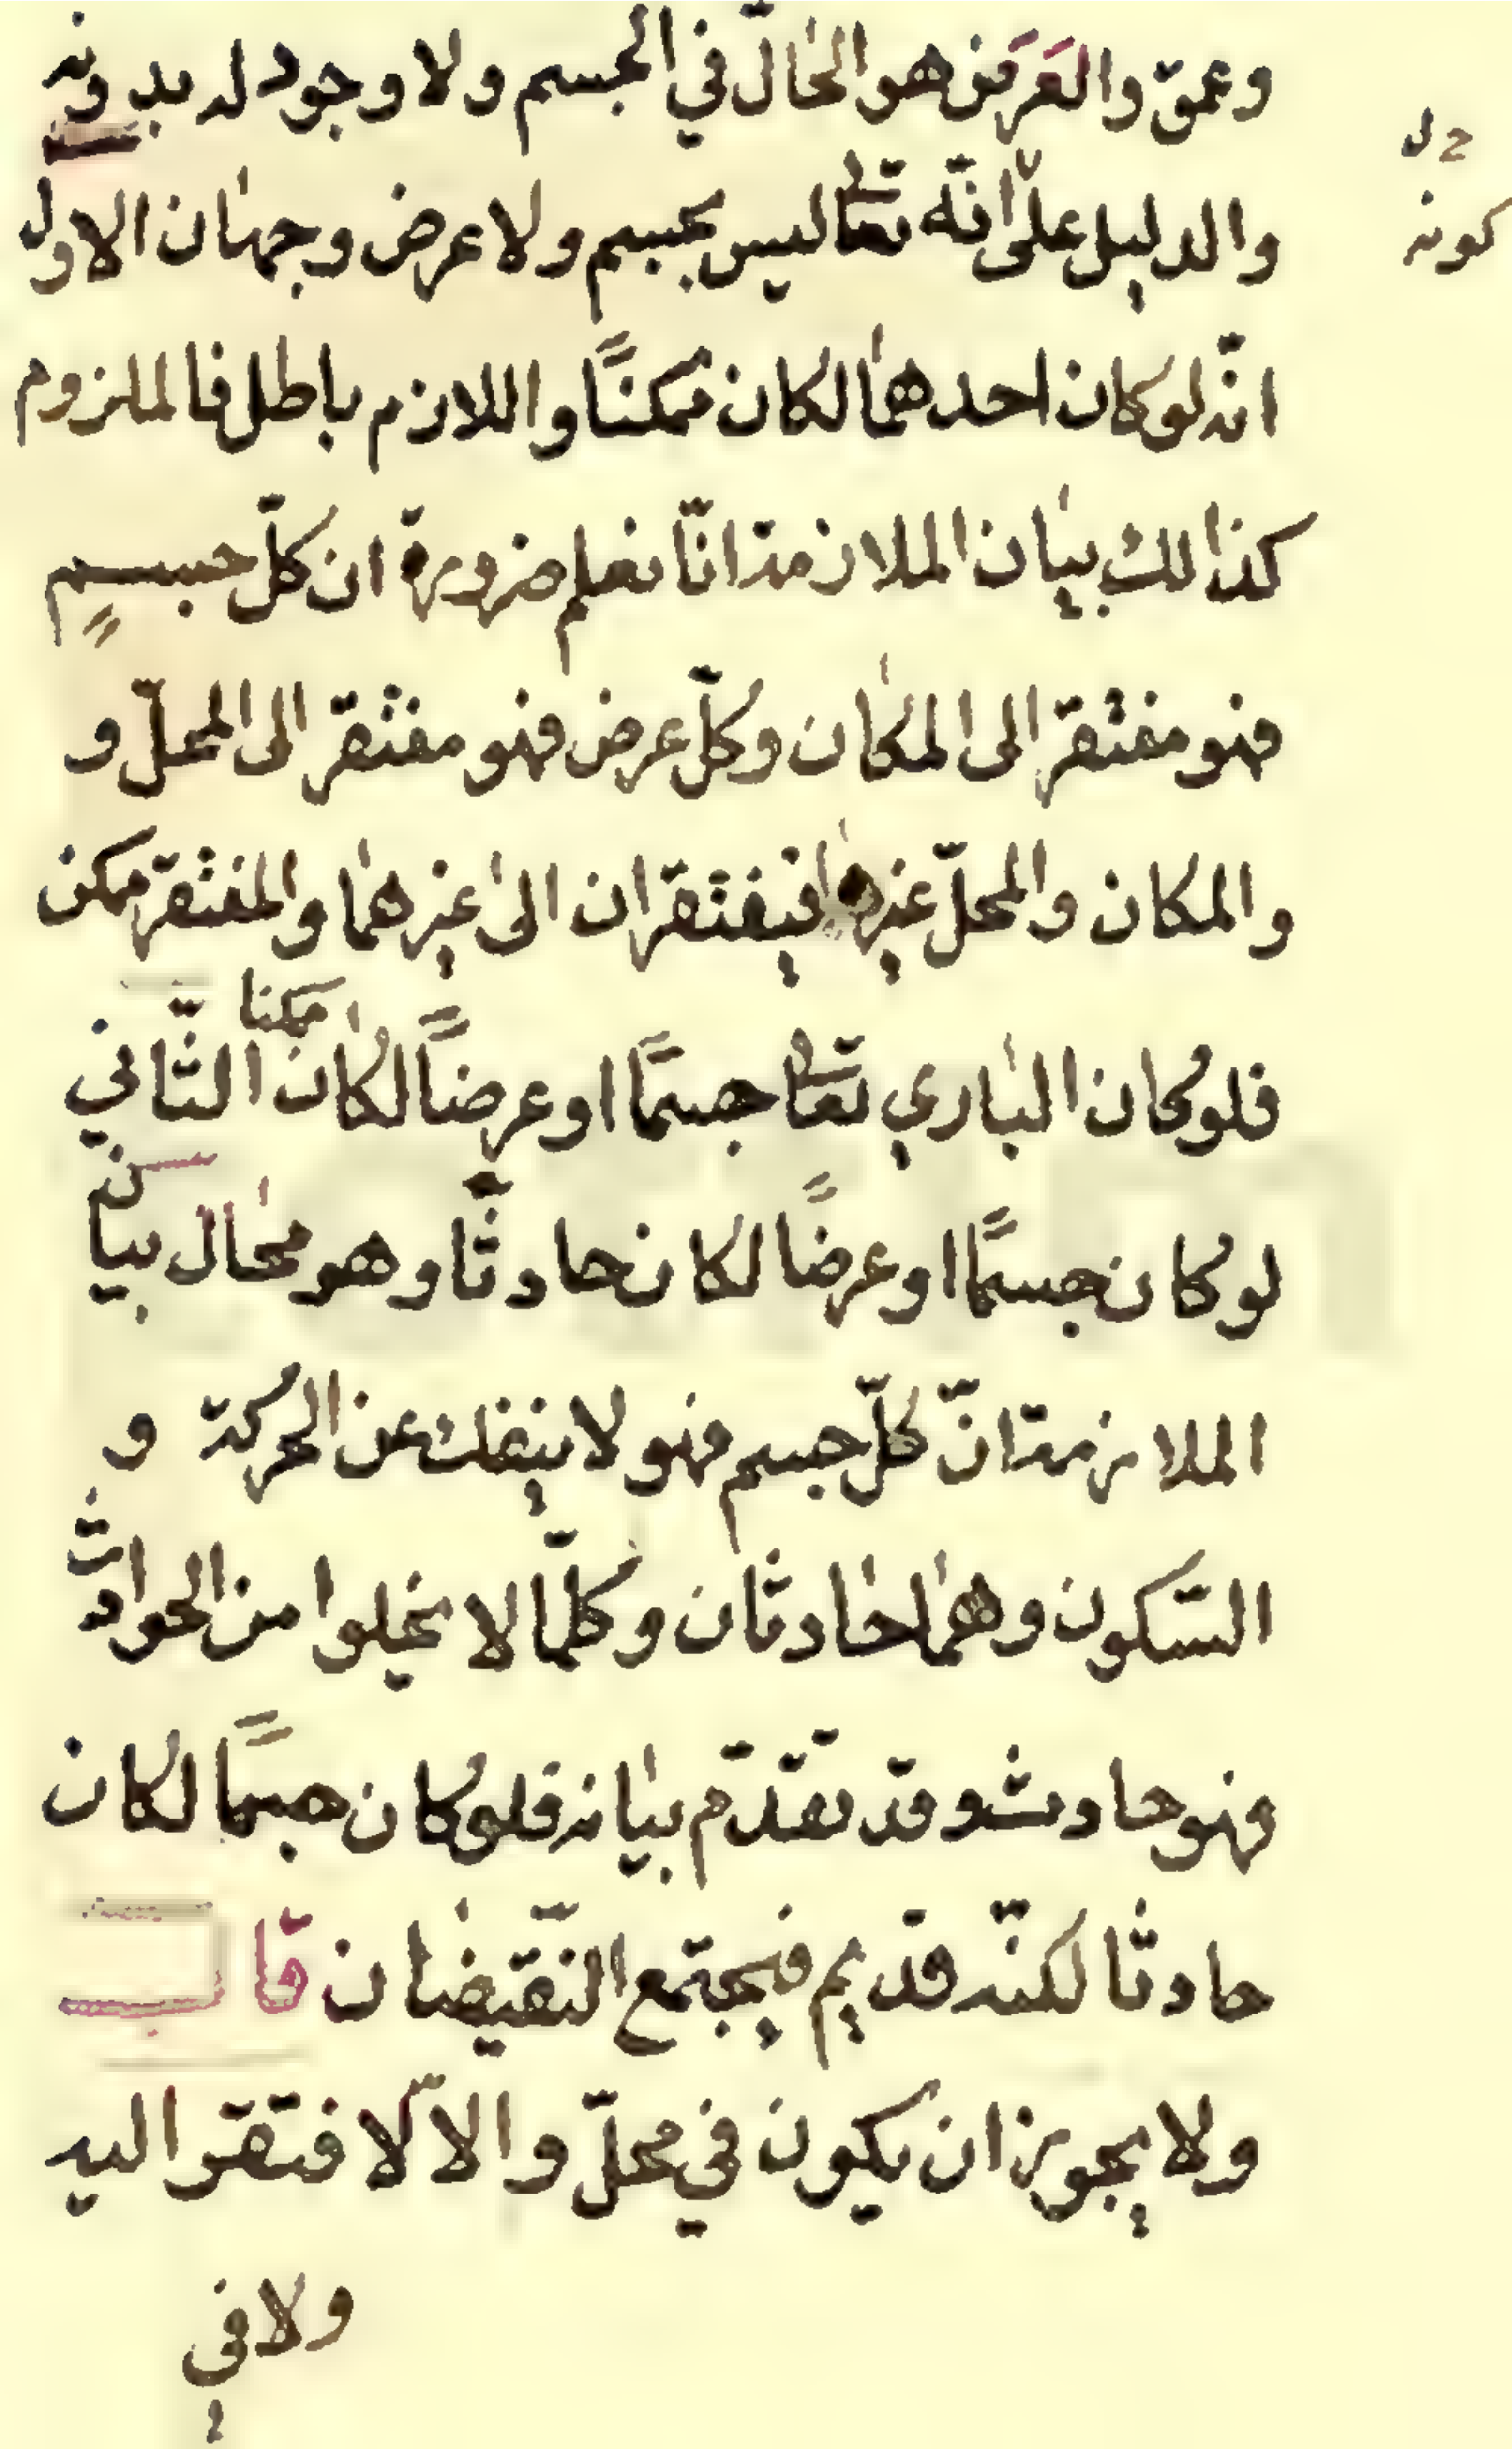 وعمق والعَرَض هو الحٰالّ في الجسم ولا وجود له بدونه
حل
كونه
والدليل على انّه تعٰالى ليس بجسم ولا عرض وجهٰان الاول
انّه لو كان احدهمٰا لكان ممكنًا واللازم باطل فالملزوم
كذالك بيٰان الملازمة انّا نعلم ضرورة ان كلّ جسمٍ
فهو مفتقر الى المكٰان وكلّ عرض فهو مفتقر الى المحلّ و
والمكان والمحلّ غيرهٰا فيفتقران الىٰ غيرهمٰا والمفتقر ممكن
فلو كان البٰاري تعٰالى جسمًا او عرضًا لكٰان ممكنا الثّاني
لو كان جسمًا او عرضًا لكان حادثًا وهو محٰال بيان
الملازمة انّ كلّ جسم فهو لا ينفك عن الحركة و
السّكون وهمٰا حٰادثان وكلّما لا يخلوا من الحوادث
فهو حادث وقد تقدّم بيٰانه فلو كان جسمًا لكان
حادثا لكنّه قديم فيجتمع النّقيضٰان قال
ولا يجوز ان يكون في محلّ والاّ لافتقر اليه
ولا في